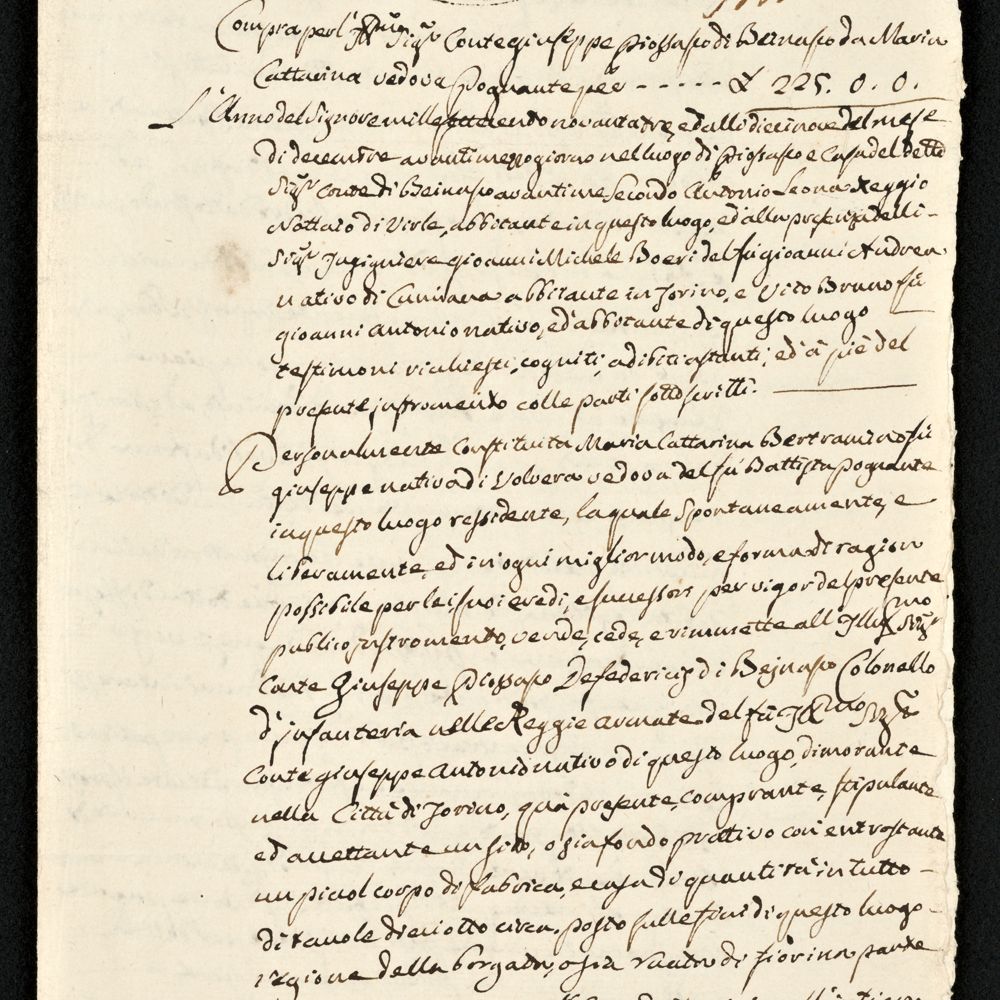 Compra per l'Ill.mo Sig.r Conte giuseppe Piossasco di Beinasco da Maria
Cattarina vedova Pognante per - - - - - £ 225. 0. 0.
L'Anno del Signore mille settecento novantatre, ed alli diecinove del mese
di decembre avanti mezzo giorno nel luogo di Piossasco e Casa del detto
Sig.r Conte di Beinasco avanti me Secondo Antonio Leona Reggio
Nottaio di Virle, abbitante in questo luogo, ed alla presenza delli -
Sig.r Ingigniere gioanni Michele Boeri del fu gioanni Andrea
nativo di abbitante in Torino, e Vito Bruno fu
gioanni Antonio nativo, ed abbitante di questo luogo
testimoni richiesti, cogniti, adibiti astanti, ed a piè del
presente instromento colle parti sottoscritti.
Personalmente Constituita Maria Cattarina Bertramino fu
giuseppe nativa di Volvera vedova del fu Battista Pognante
in questo luogo ressidente, la quale spontaneamente, e
liberamente, ed in ogni miglior modo, e forma di ragion
possibile per lei suoi eredi, e successori per vigor del presente
publico instromento, vende, cede, e rimmette all'Ill.mo Sig.r
Conte Giuseppe Piossasco Defedericis di Bejnasco Colonello
d'infanteria nelle Reggie armate del fu Ill.mo Sig.r
Conte giuseppe Antonio nativo di questo luogo, dimorante
nella Città di Torino, quà presente, comprante, stipulante
ed accettante un sito, o sia fondo prativo con entrostante
un picol corpo di fabrica, e casa di quantità in tutto -
di tavole dieciotto circa, posto sulle fini di questo luogo -
regione della borgata, o sia di fiorino parte